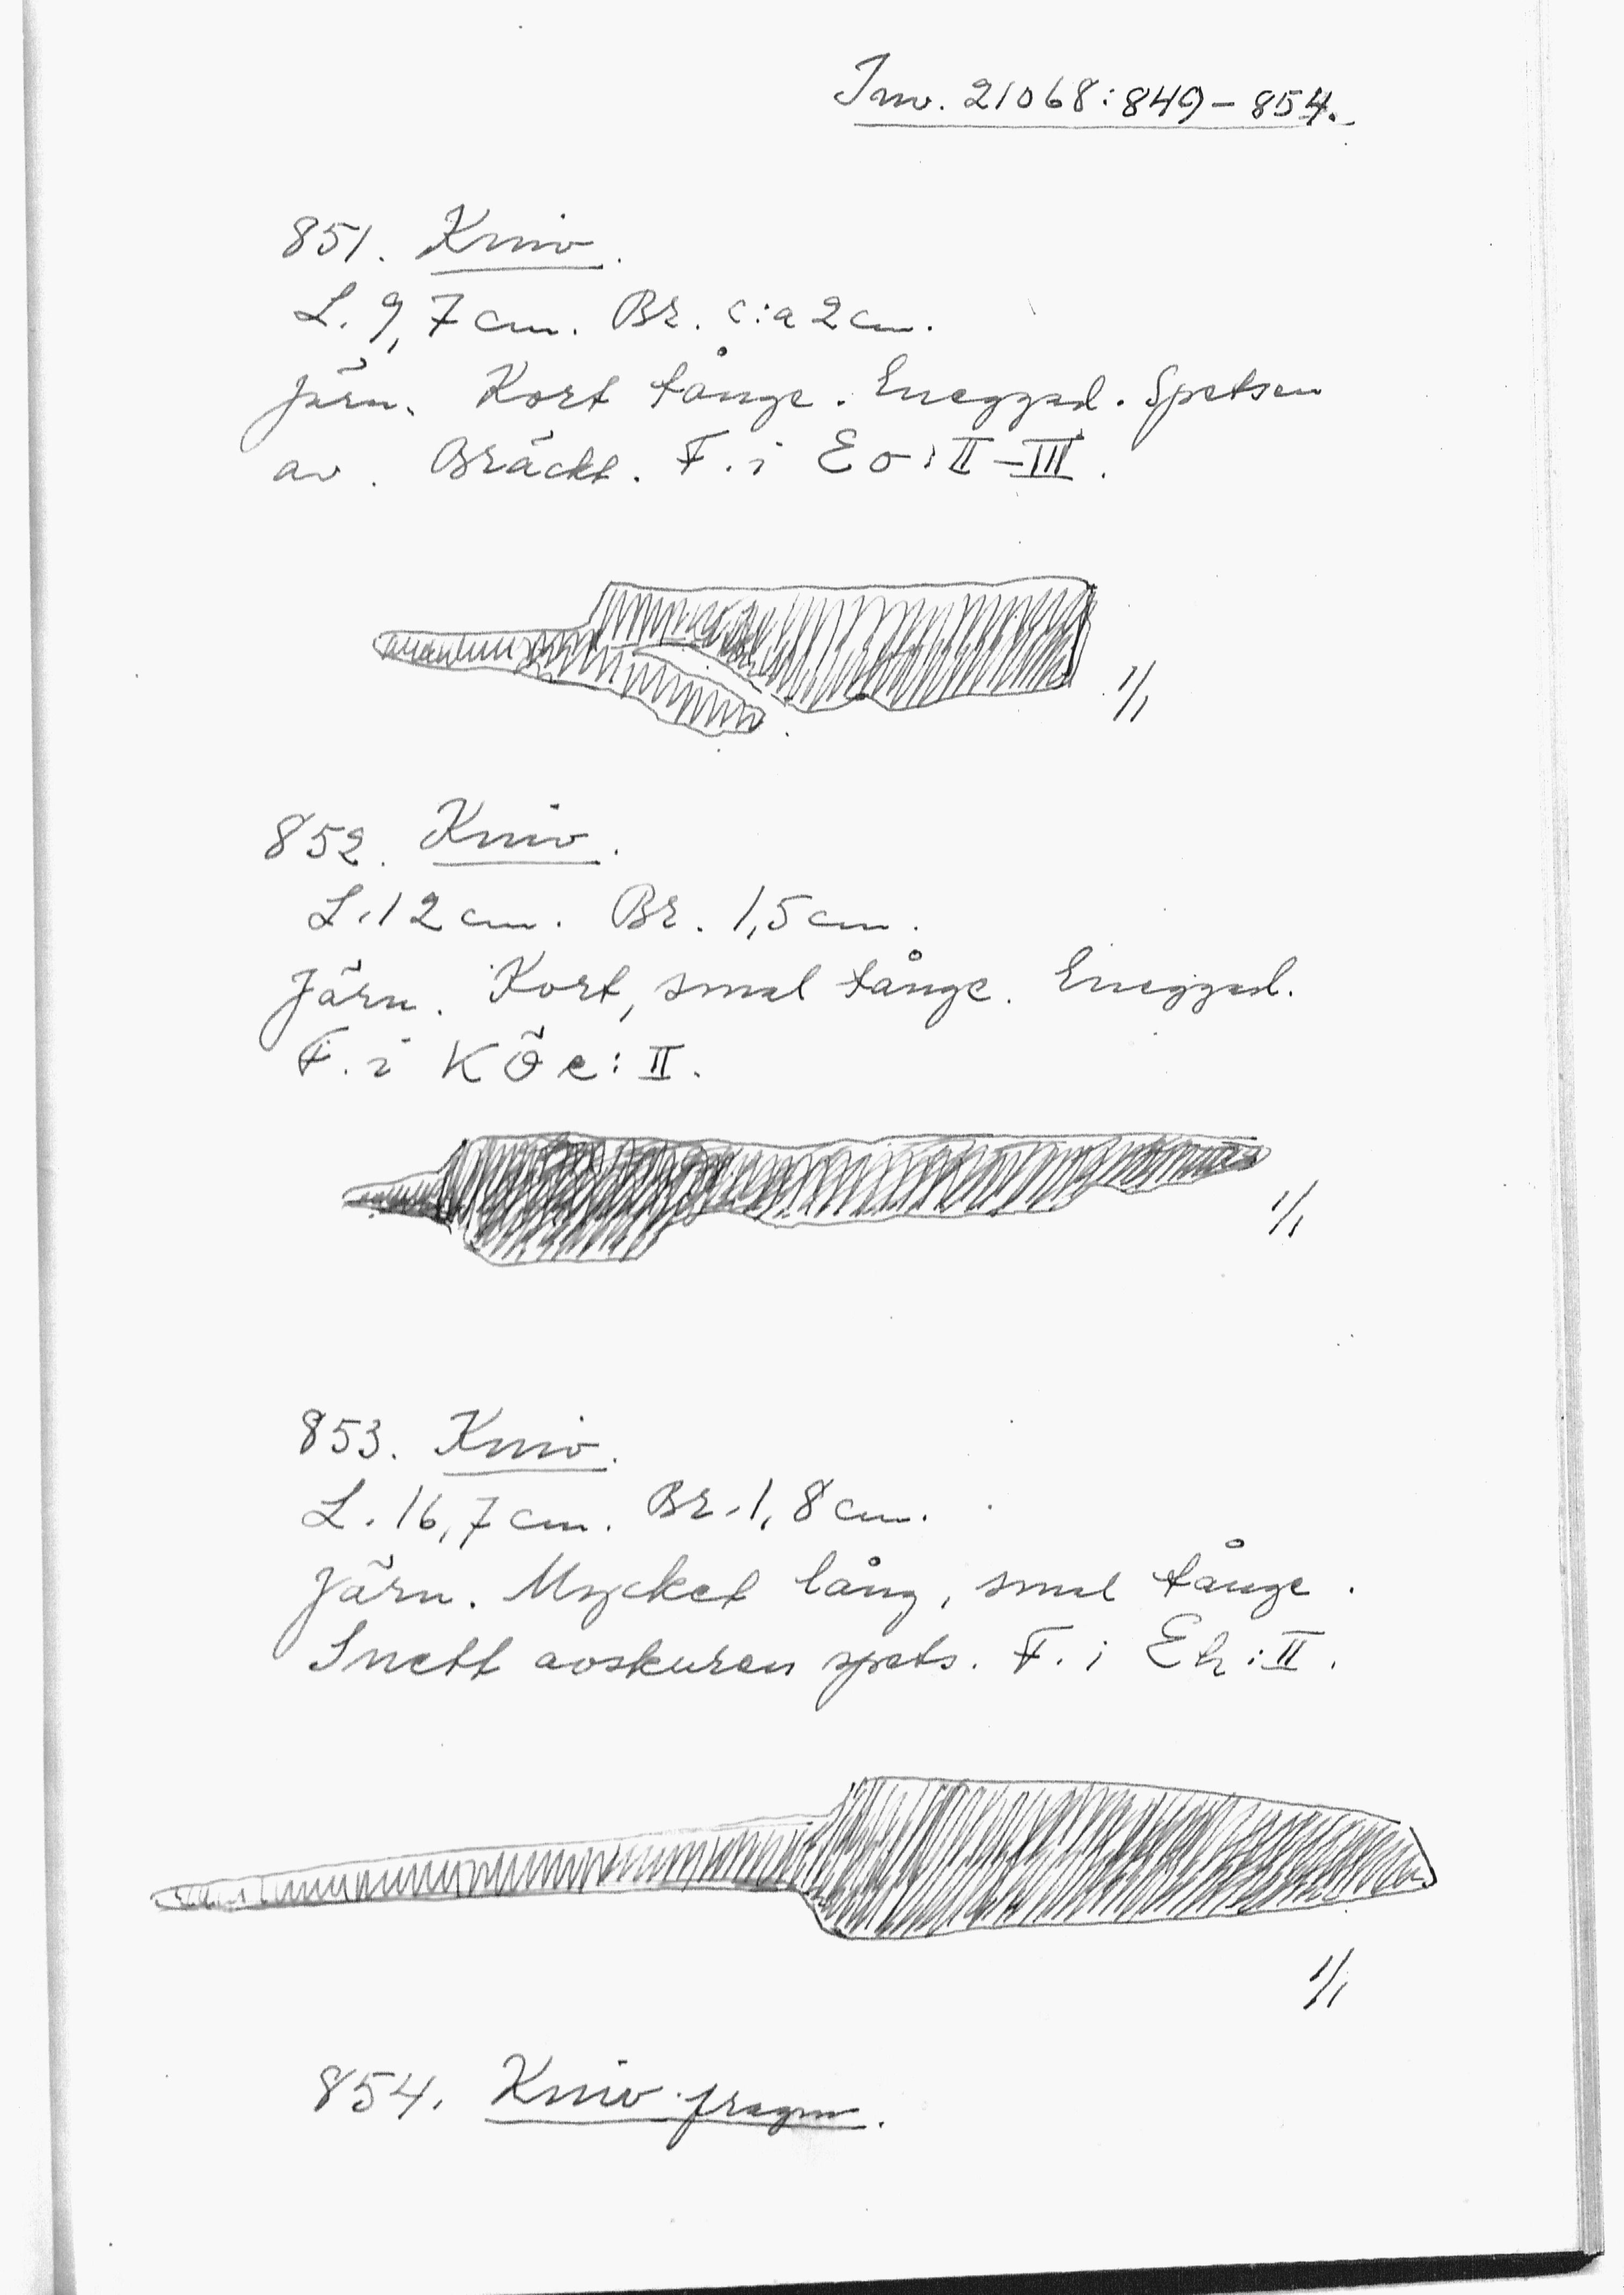 Inv. 21068:849–854.
851. Kniv.
L. 9,7 cm. Br. c:a 2 cm.
Järn. Kort tånge. Eneggad. Spetsen
av. Bräckt. F. i Eo:II–III.
1/1
852. Kniv.
L. 12 cm. Br. 1,5 cm.
Järn. Kort, smal tånge. Eneggad.
F. i KÖe:II.
1/1
853. Kniv.
L. 16,7 cm. Br. 1,8 cm.
Järn. Mycket lång, smal tånge.
Snett avskuren spets. F. i Eh:II.
1/1
854. Kniv fragm.